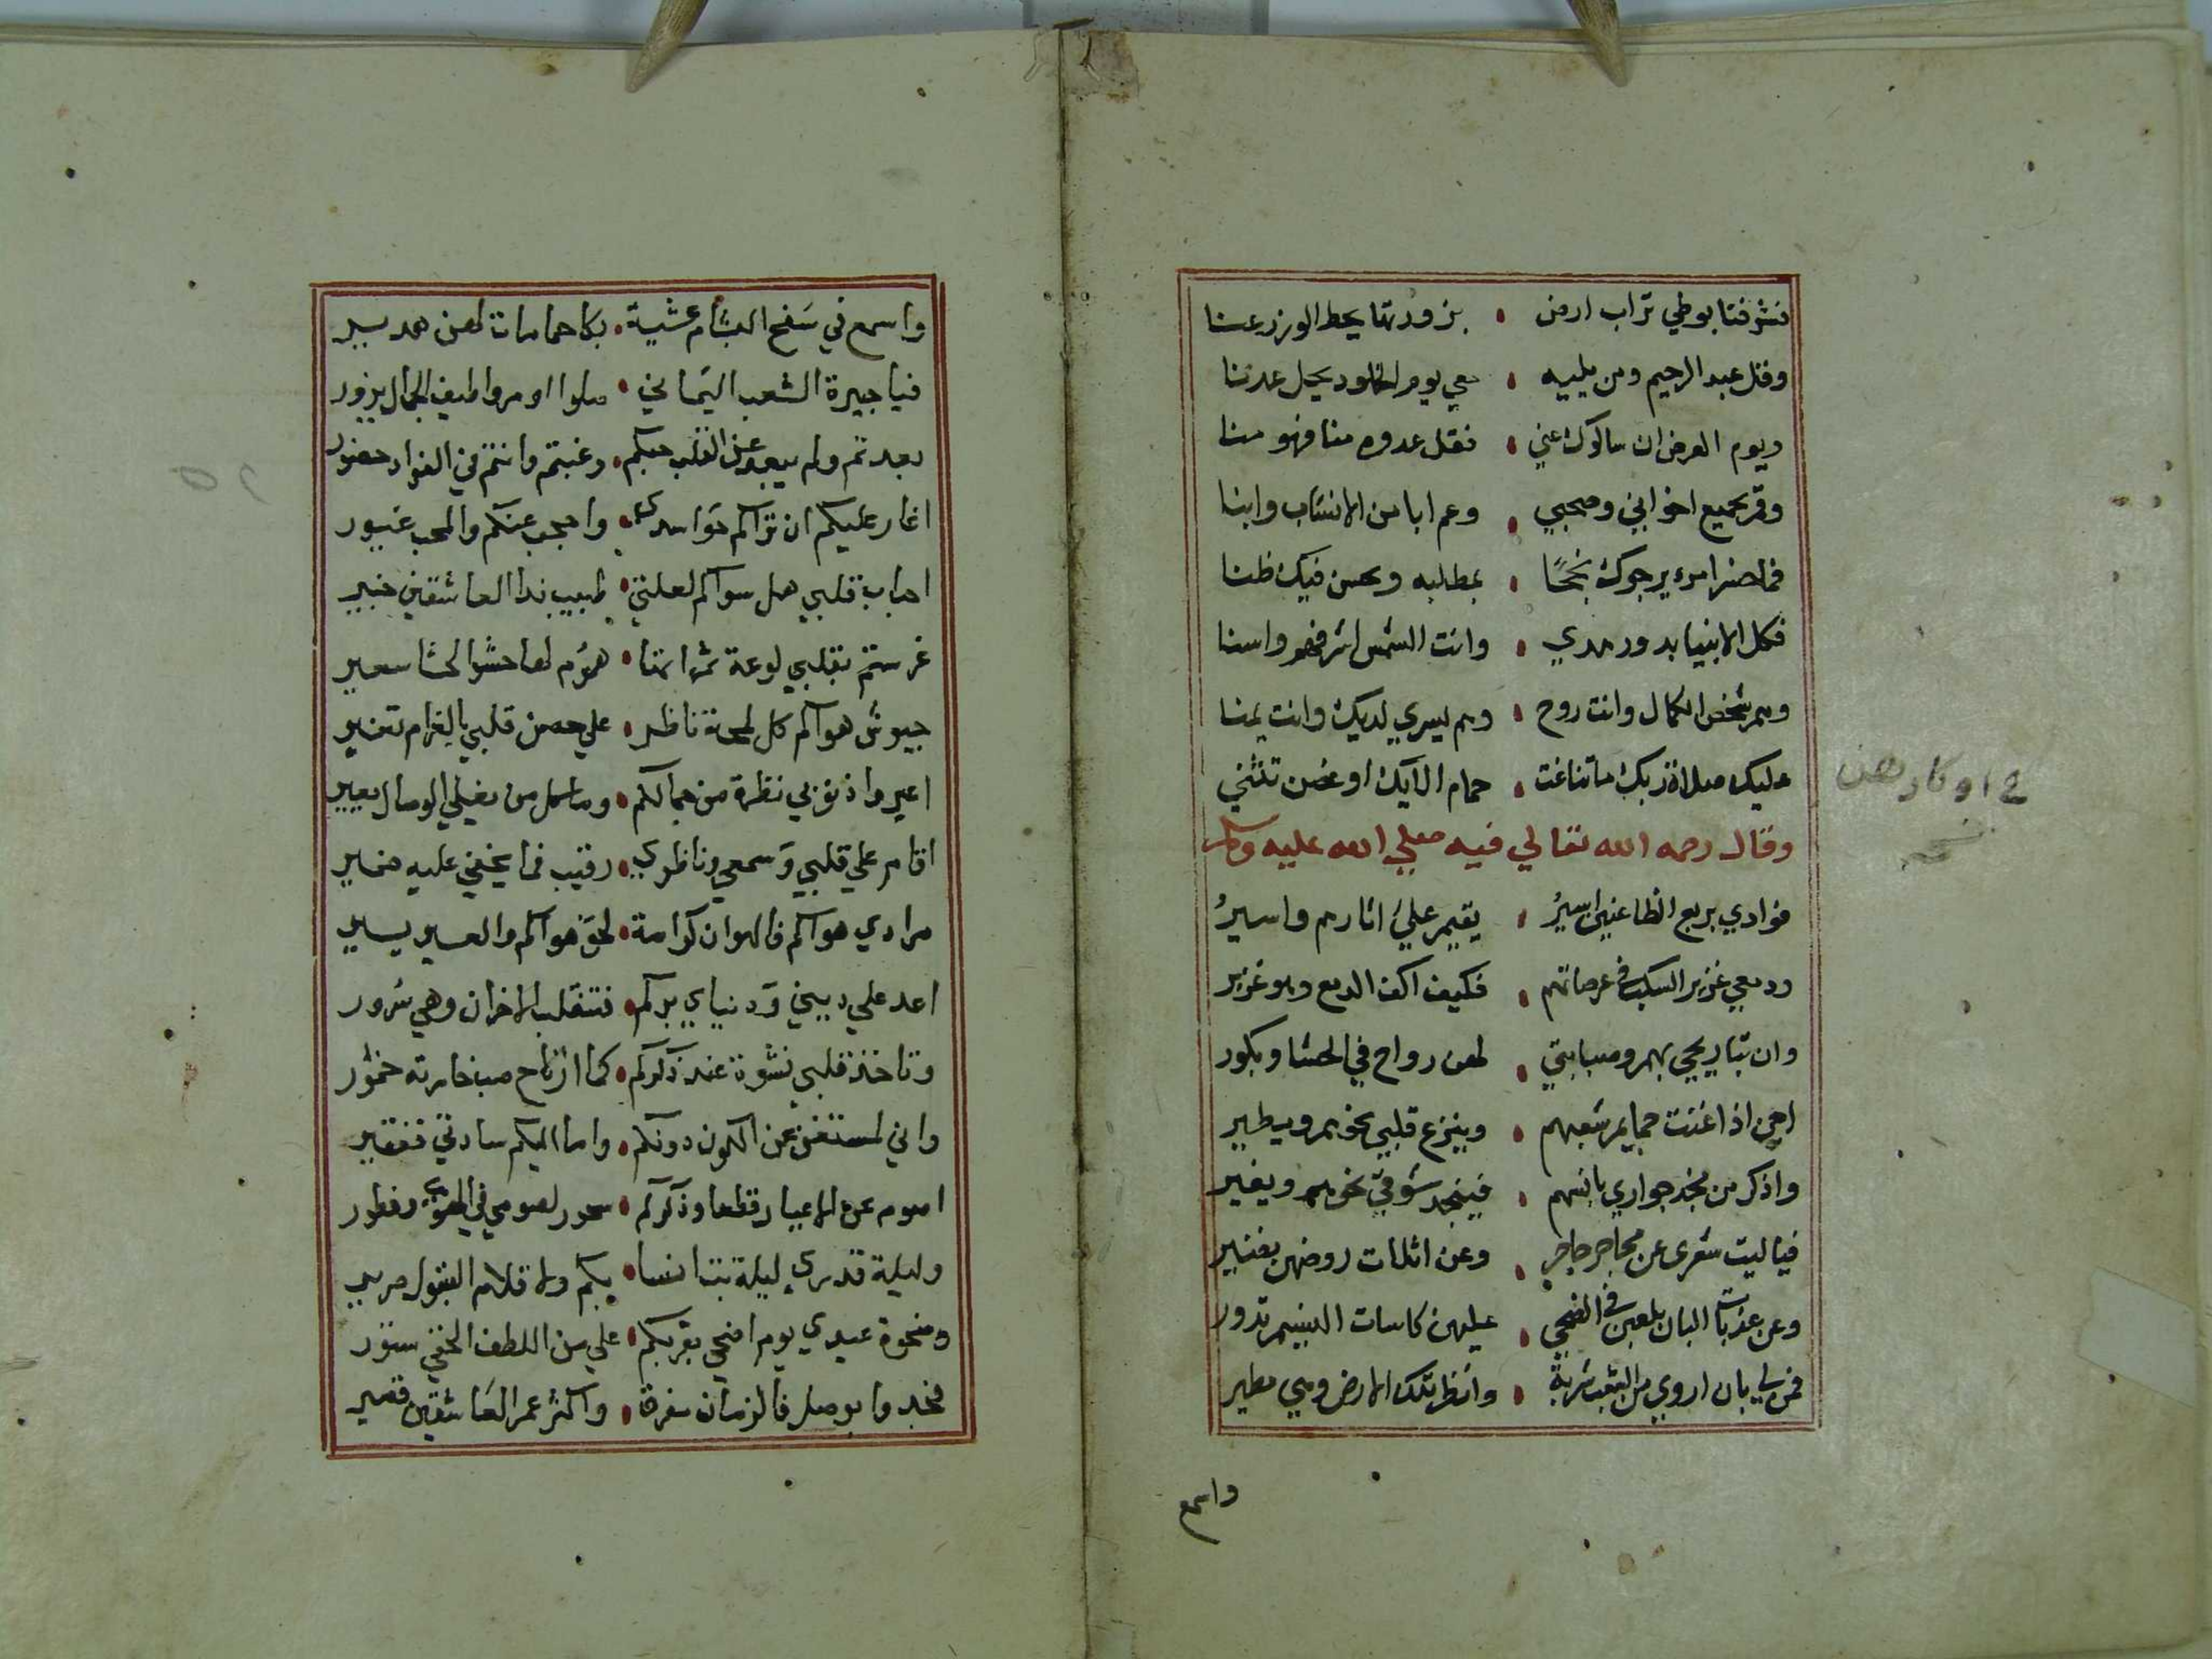 فشرفنا بوطي تراب ارض • بزورتها يحط الوزر عنا
وقل عبد الرحيم ومن يليه • معي يوم الخلود يحل عدننا
ويوم العرض ان سالوك عني • فقل عدوه منا فهو منا
وقر بجميع اخواني وصحبي • وعم ابا من الانساب وابنا
فما ضر امرء يرجوك نجحًا • بمطلبه ويحسن فيك ظنا
فكل الانبيا بدور هدي • وانت الشمس اشرفهم واسنا
وهم شخص الكمال وانت روح • وهم يسري لديك وانت يمنا
عليك صلاة ربك ما تناغت • حمام الايك او غصن تثني
وقال رحمه الله تعالي فيه صلي الله عليه وسلم
فوادي بربع الظاعنين اسيرُ • يقيم عليَ اثارهم واسيرُ
ودمعي غزير السكب في عرصاتهم • فكيف اكف الدمع وهو غزير
وان تباريحي بهم وصبابتي • لهن رواح في الحشا وبكور
احن اذا غنت حمايم شعبهم • وينزع قلبي نحوهم ويطير
واذكر من نجد جواري بانهم • فينجد شوقي نحوهم ويغير
فيا ليت شعري عن محاجر حاجر • وعن اثلات روضهن نضير
وعن عذبات البان يلعبن في الضحي • عليهن كاسات النسيم تدور
فمن لي بان اروي من الشعب شربة • وانظر تلك الارض وهي مطير
واسمع
ع اوكارهن
نسخه
واسمع في سَفح البشام عشية • بكا حمامات لهن هدير
فيا جيرة الشعب اليَماني • صلوا او مروا طيف الخيال يزور
بعدتم ولم يبعد عن القلب حبكم • وغبتم وانتم في الفواد حضور
اغار عليكم ان تراكم حَواسدي • واحجب عنكم والمحب غيور
احباب قلبي هل سواكم لعلتي • طبيب بدا العاشقين خبير
غرستم بقلبي لوعة ثمراتها • همُوم لها حشو الحشا سعير
جيوش هواكم كل لمحة ناظر • علي حصن قلبي بالغرام تغير
اعيروا ذنوبي نظرة من جمالكم • وما كل من يغلي الوصال يعير
اقام علي قلبي وَسمعي وناظري • رقيب فما يخفي عليه ضمير
مرادي هواكم فالهوان كرامة • لحق هواكم والعسير يسير
اعد علي ديني وَدنياي بركم • فتنقلب الاحزان وهي سُرور
وتاخذ قلبي نشوة عند ذكركم • كما ارتاح صب خامرته خمُور
واني لمستغن عن الكون دونكم • واما اليكم سادتي ففقير
اصوم عن الاغيار قطعا وذكركم • سحور لصومي في الهوي وفطور
وليلة قدري ليلة بت انسا • بكم ولاقلام القبول صرير
وضحوة عيدي يوم اضحي بقربكم • علي من اللطف الخفي ستور
فجدوا بوصل فالزمان مفرق • واكثر عمر العَاشقين قصير